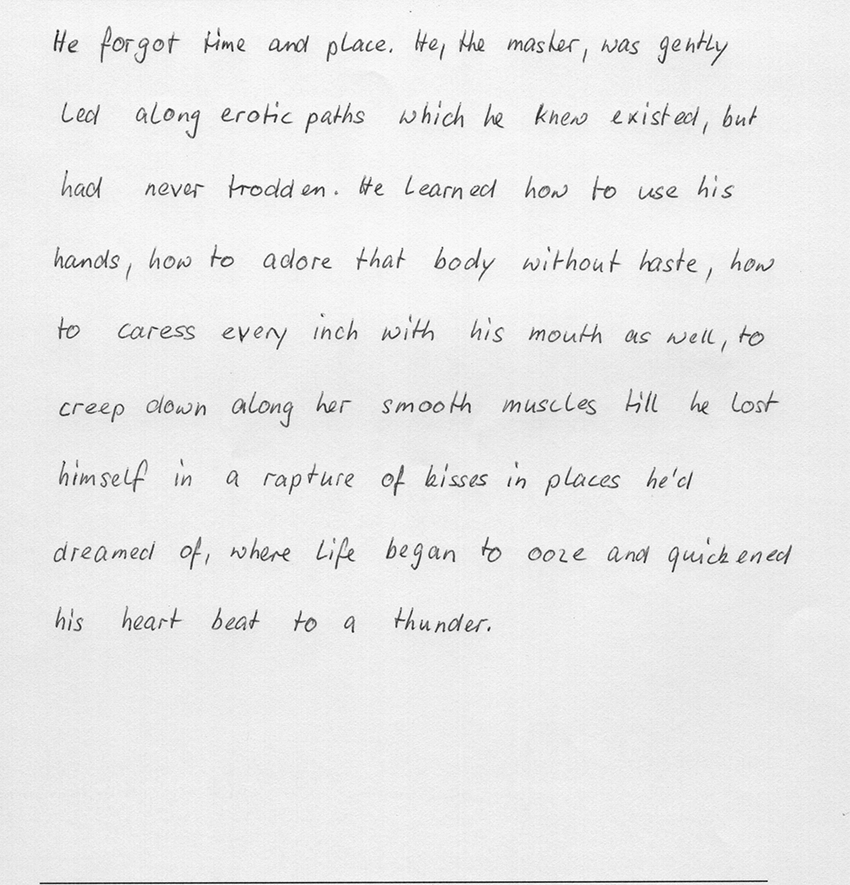 He forgot time and place. He, the master, was gently
led along erotic paths which he knew existed, but
had never trodden. He learned how to use his
hands, how to adore that body without haste, how
to caress every inch with his mouth as well, to
creep down along her smooth muscles till he lost
himself in a rapture of kisses in places he'd
dreamed of, where life began to ooze and quickened
his heart beat to a thunder.